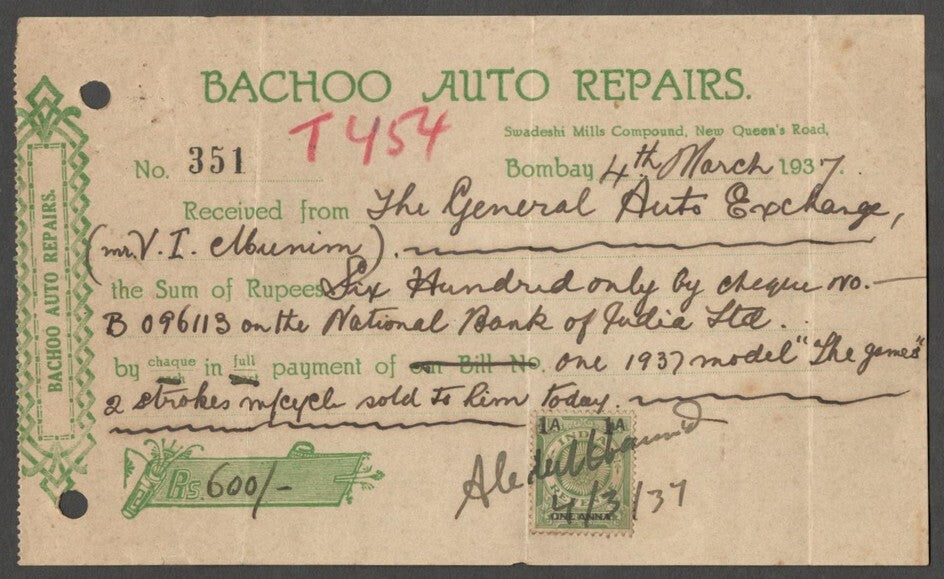 BACHOO AUTO REPAIRS.
T 454
Swadeshi Mills Compound, New Queen's Road,
No. 351
Bombay 4th March 1937.
Received from The General Auto Exchange,
(mr. V. I. Munim).
the Sum of Rupees Six Hundred only by cheque no.
B 096113 on the National Bank of India Ltd.
by chaque in full payment of Bill No. one 1937 model "The james"
2 strokes m/cycle sold to him today.
BACHOO AUTO REPAIRS.
Rs. 600/-
1A 1A
INDIA
REVENUE
ONE ANNA
4/3/37